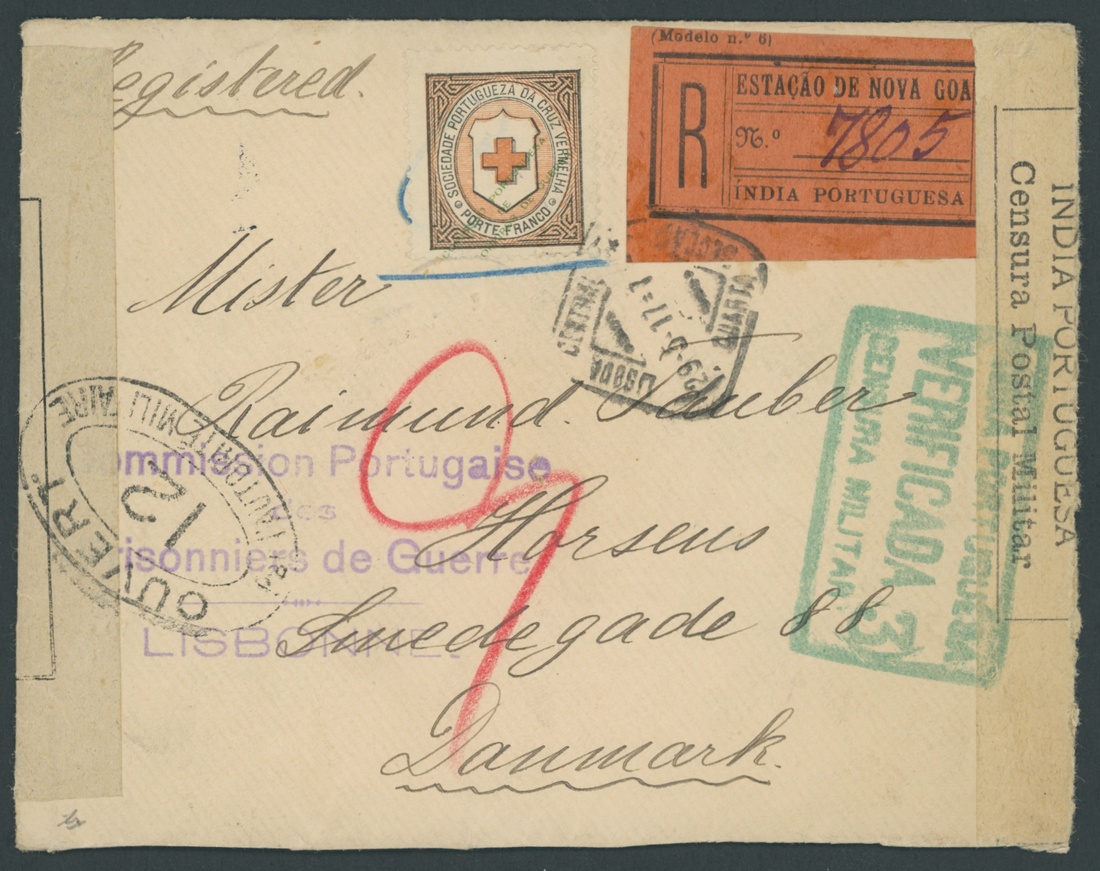 Registered.
SOCIEDADE PORTUGUEZA DA CRUZ VERMELHA
PORTE FRANCO
(Modelo n.º 6)
R
ESTAÇÃO DE NOVA GOA
N.º 7805
ÍNDIA PORTUGUESA
Mister
Raimund Tauber
Horsens
Smedegade 88
Danmark.
LISBOA CENTRAL
29-9-17=1
OUVERT
L'AUTORITÉ MILITAIRE
12
Commission Portugaise
des
Prisonniers de Guerre
LISBONNE
9
VERIFICADA 3
CENSURA MILITAR
INDIA PORTUGUESA
INDIA PORTUGUESA
Censura Postal Militar